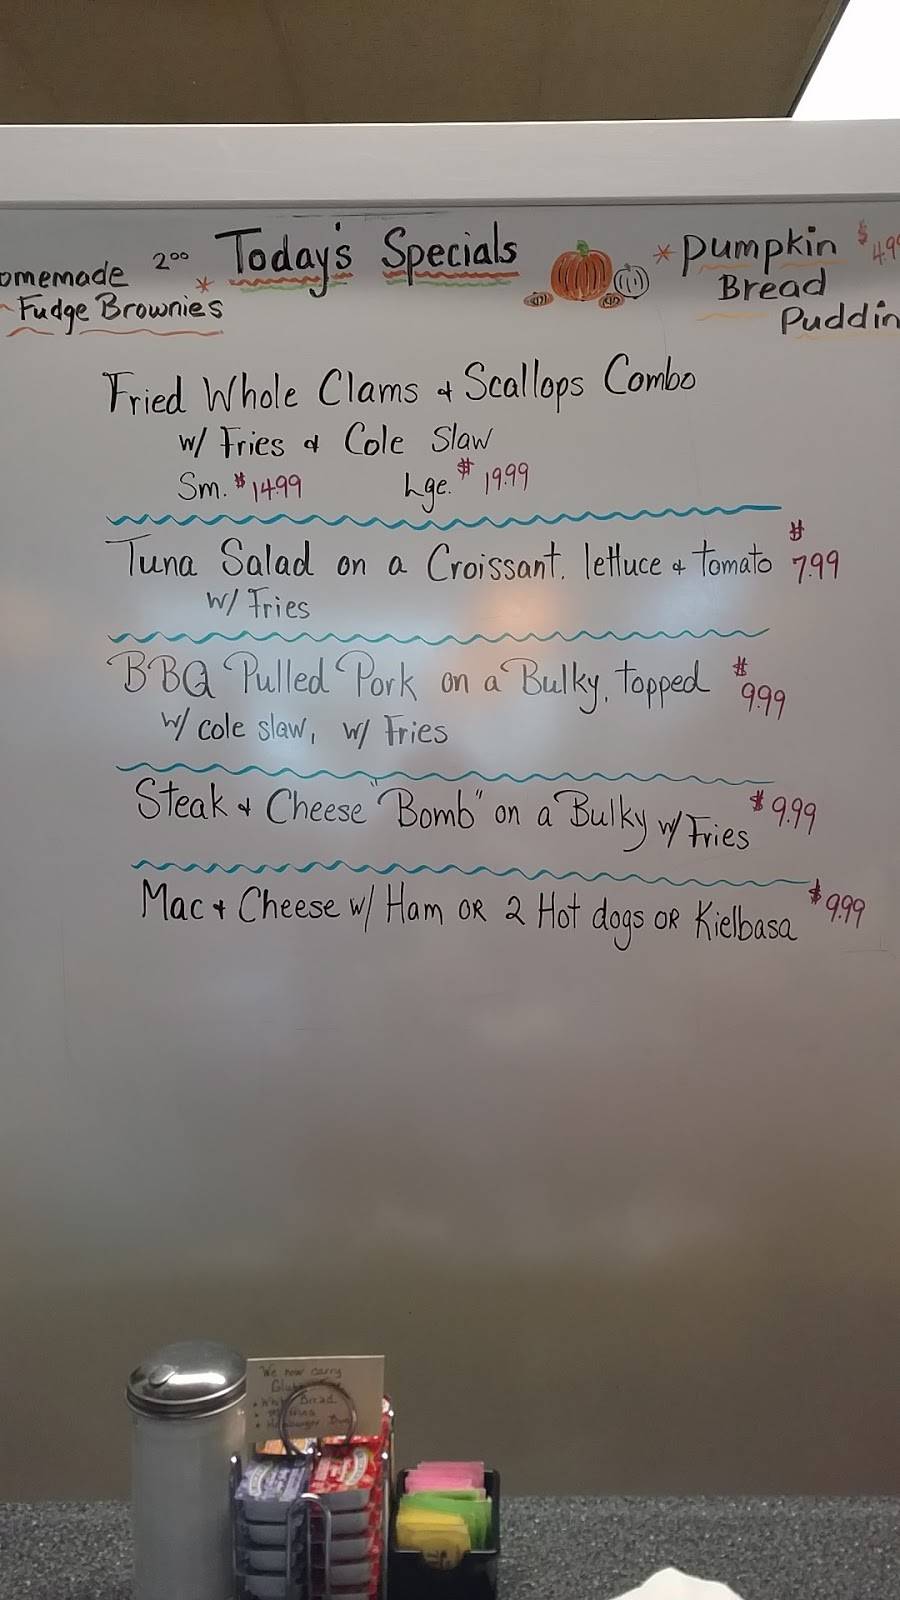 omemade 2⁰⁰
Fudge Brownies
Today's Specials
Pumpkin $4.99
Bread
Puddin
Fried Whole Clams & Scallops Combo
w/ Fries & Cole Slaw
Sm. $14.99 Lge. $19.99
Tuna Salad on a Croissant, lettuce & tomato $7.99
w/ Fries
BBQ Pulled Pork on a Bulky, topped $9.99
w/ cole slaw, w/ Fries
Steak & Cheese "Bomb" on a Bulky w/ Fries $9.99
Mac & Cheese w/ Ham OR 2 Hot dogs OR Kielbasa $9.99
We now carry
Bread
Hamburger